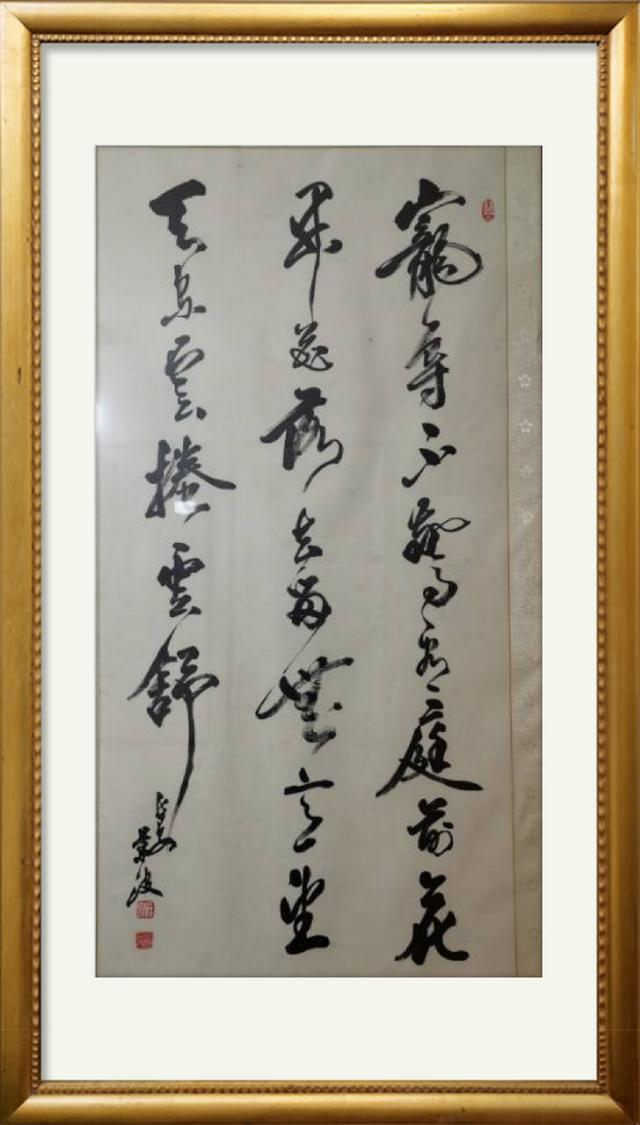 寵辱不驚看庭前花
開花落去留無意望
天空雲捲雲舒